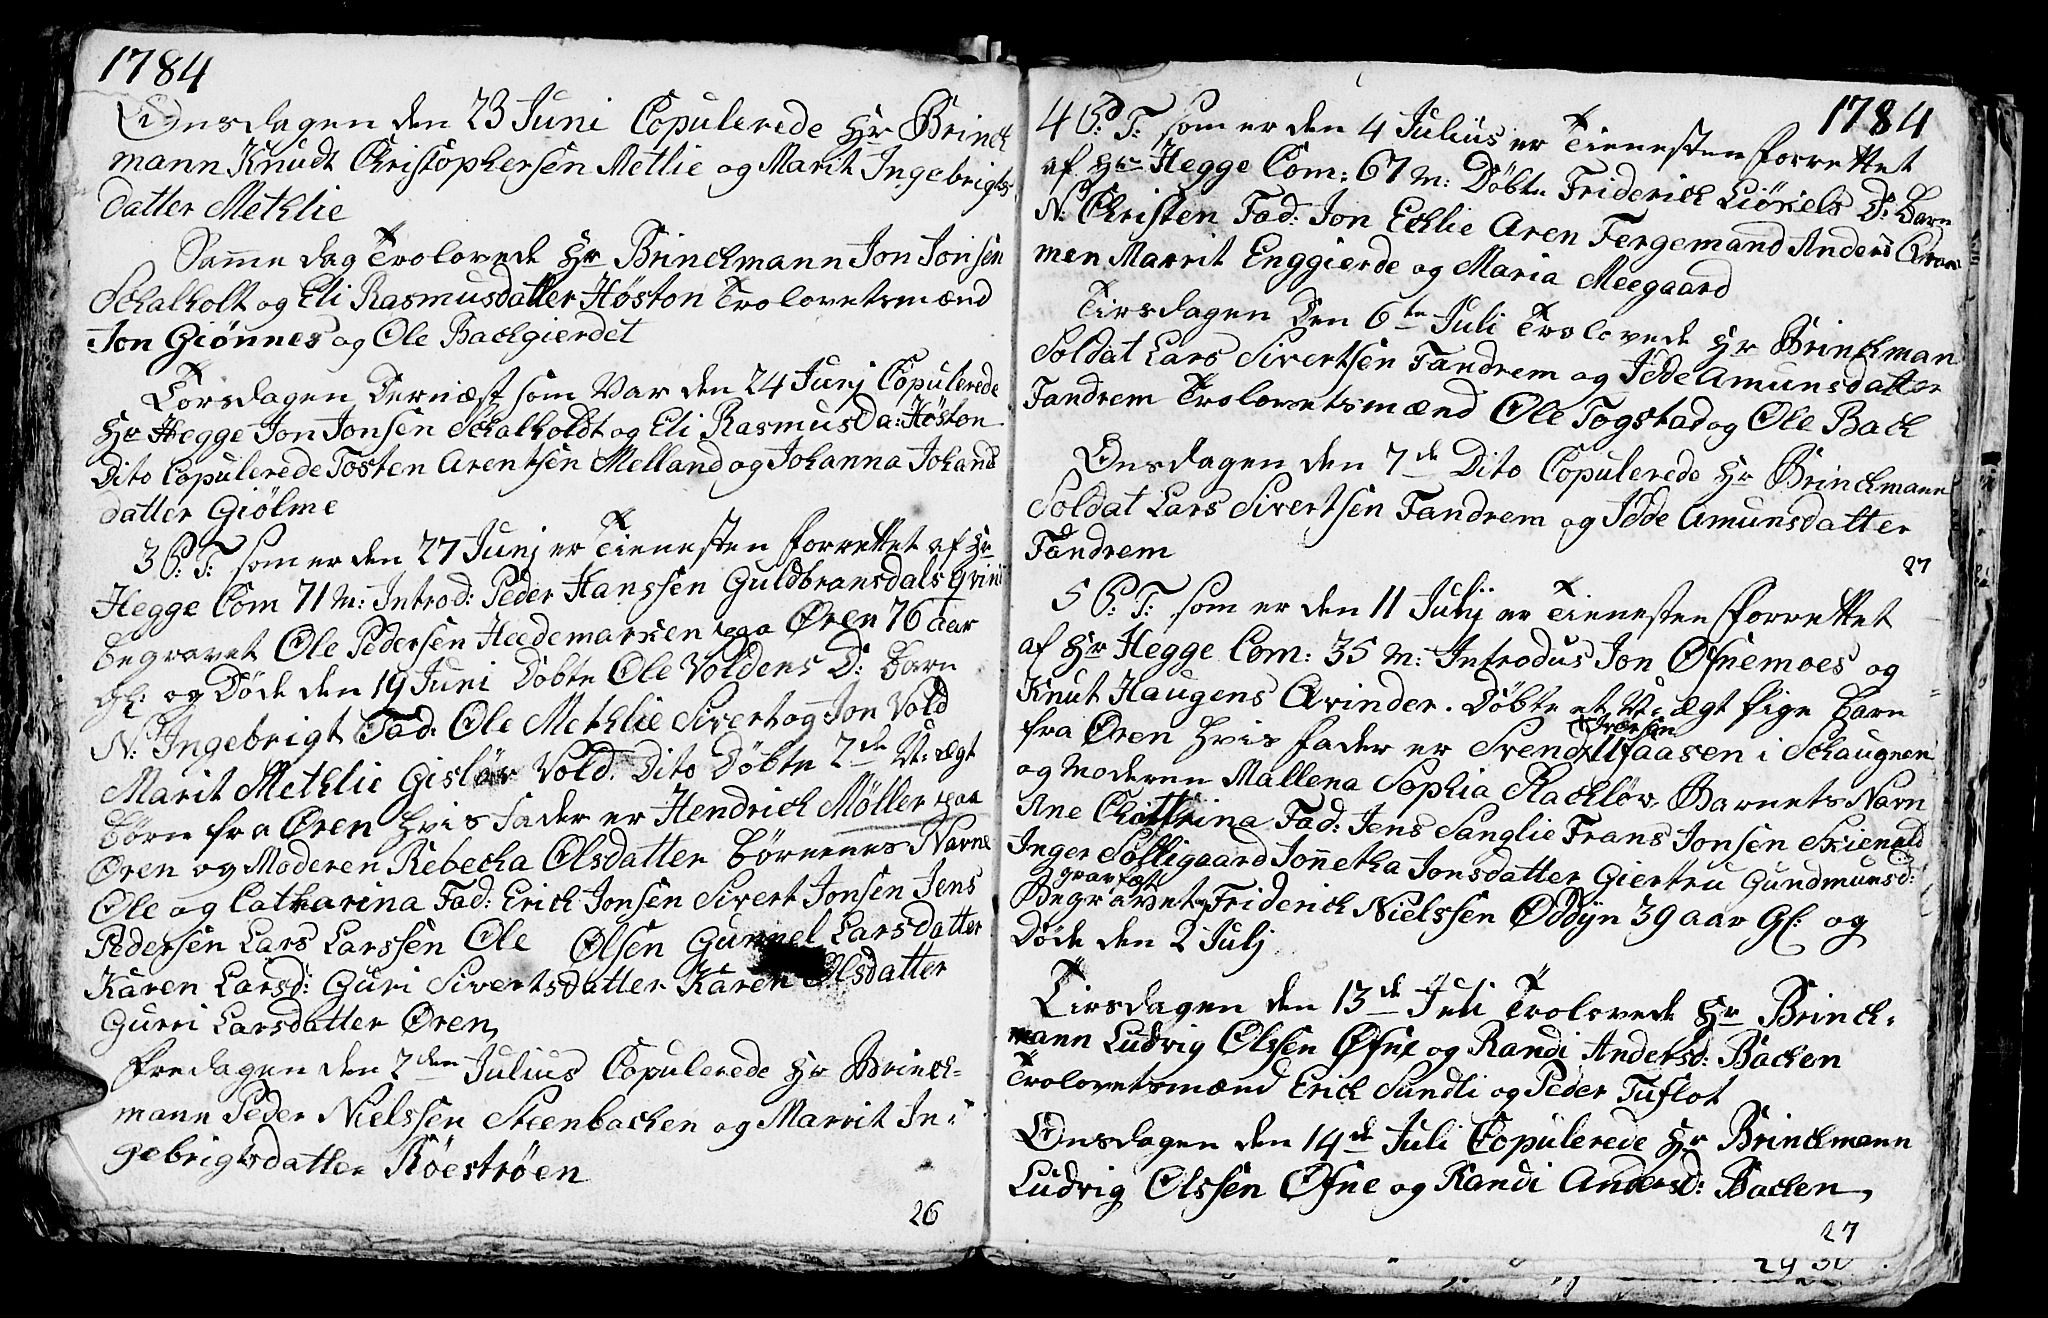 1784
Onsdagen den 23 Juni Copulerede Hr Brinck
mann Knudt Christophersen Metlie og Marit Ingebrigts
datter Methlie
Samme dag Trolovede Hr Brinckmann Jon Jonsen
Schalholt og Eli Rasmusdatter Høston Trolovetsmænd
Jon Giønnes og Ole Backgierdet
Torsdagen Dernæst som Var den 24 Junj Copulerede
Hr Hegge Jon Jonsen Schalholdt og Eli Rasmus Da: Höston
Dito Copulerede Tosten Arentsen Melland og Johanna Johans
datter Giölme
3 S: T: som er den 27 Junj er Tienesten forrettet af Hr
Hegge Com 71 M: Introd: Peder Hanssen Guldbransdals qvin
begravet Ole Pedersen Heedemarken paa Øren 76 aar
Gl: og Døde den 19 Juni Döbte Ole Voldens D: barn
N: Ingebrigt Fad: Ole Methlie Sivert og Jon Vold
Marit Methlie Gislør Vold. Dito Døbte 2de U: ægt
børn fra Øren hvis fader er Hendrich Möller paa
Øren og Moderen Rebecka Olsdatter børnenes Navne
Ole og Catharina Fad: Erich Jonsen Sivert Jonsen Jens
Pedersen Lars Larssen Ole Olsen Gunnel Larsdatter
Karen Larsd: Guri Sivertsdatter Karen Olsdatter
Gurri Larsdatter Øren,
fredagen den 2den Julius Copulerede Hr Brinck-
mann Peder Nielssen Steenbacken og Marrit In-
gebrigtsdatter Röeströen
26
1784
4 S: T: som er den 4 Julius er Tienesten forrettet
af Hr Hegge Com: 67 M: Döbte Friderich Liöxels D: barn
N: Christen Fad: Jon Ecklie Aren Fergemand Anders
men Marrit Enggierde og Maria Meegaard
Tirsdagen Den 6te Juli Trolovede Hr Brinckman
Soldat Lars Sivertsen Fandrem og Idde Amunsdatter
Fandrem Trolovetsmænd Ole Togstad og Ole Back
Onsdagen den 7de Dito Copulerede Hr Brinckmann
Soldat Lars Sivertsen Fandrem og Idde Amunsdatter
Fandrem
27
5 S: T: som er den 11 Julij er Tienesten forrettet
af Hr Hegge Com: 35 M: Introdus Jon Øfnemoes og
Knut Haugens Qvinder. Döbte et U: ægt pige barn
fra Øren hvis fader er Svend Iversen Ulfaasen i Schaugnen
og moderen Mallena Sophia Rachløv, Barnets Navn
Ane Chattrina Fad: Jens Sanglie Frans Jonsen Skienald
Inger Solligaard Jonnetha Jonsdatter Giertru Gundmunsd:
Begravet Friderich Nielssen Oddyn 39 aar Gl: og
Døde den 2 Julj
Tirsdagen den 13de Juli Trolovede Hr Brinck-
mann Ludvig Olssen Øfne og Randi Andersd: Backen
Trolovetsmænd Erich Sundli og Peder Tuflot
Onsdagen den 14de Juli Copulerede Hr Brinckmann
Ludvig Olssen Øfne og Randi Andersd: Backen,
27